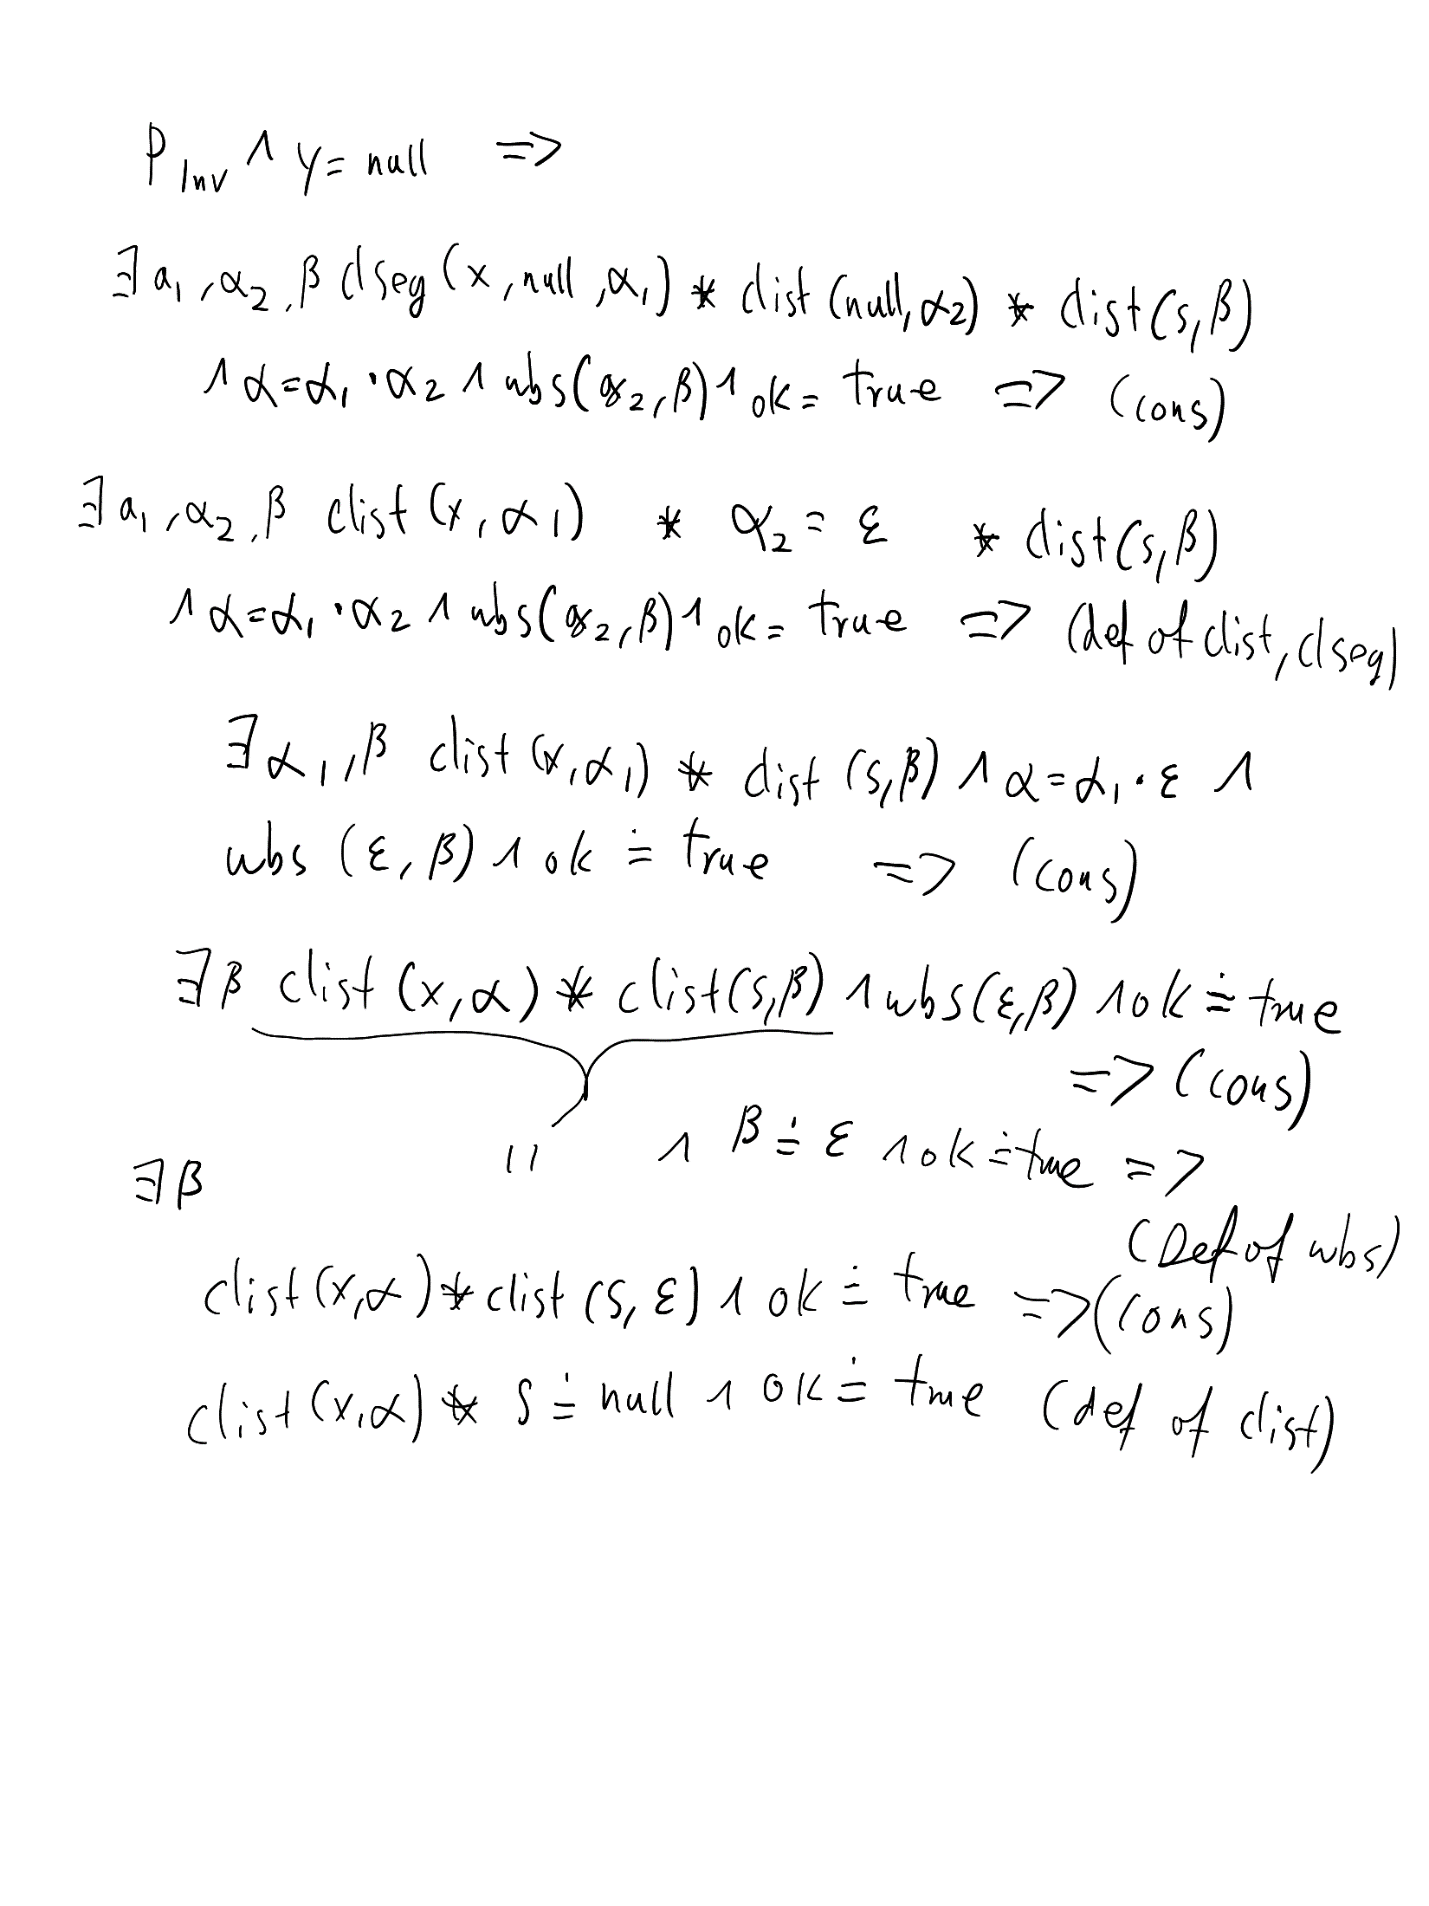 P_Inv ∧ y = null =>
∃ a₁, α₂, β clseg (x, null, α₁) * clist (null, α₂) * clist (s, β)
∧ α = α₁ · α₂ ∧ wbs(α₂, β) ∧ ok = true => (cons)
∃ a₁, α₂, β clist (x, α₁) * α₂ = ε * clist (s, β)
∧ α = α₁ · α₂ ∧ wbs(α₂, β) ∧ ok = true => (def of clist, clseg)
∃ α₁, β clist (x, α₁) * clist (s, β) ∧ α = α₁ · ε ∧
wbs (ε, β) ∧ ok ≐ true => (cons)
∃ β clist (x, α) * clist (s, β) ∧ wbs(ε, β) ∧ ok ≐ true
=> (cons)
∃ β " ∧ β ≐ ε ∧ ok ≐ true =>
(Def of wbs)
clist (x, α) * clist (s, ε) ∧ ok ≐ true => (cons)
clist (x, α) * s ≐ null ∧ ok ≐ true (def of clist)